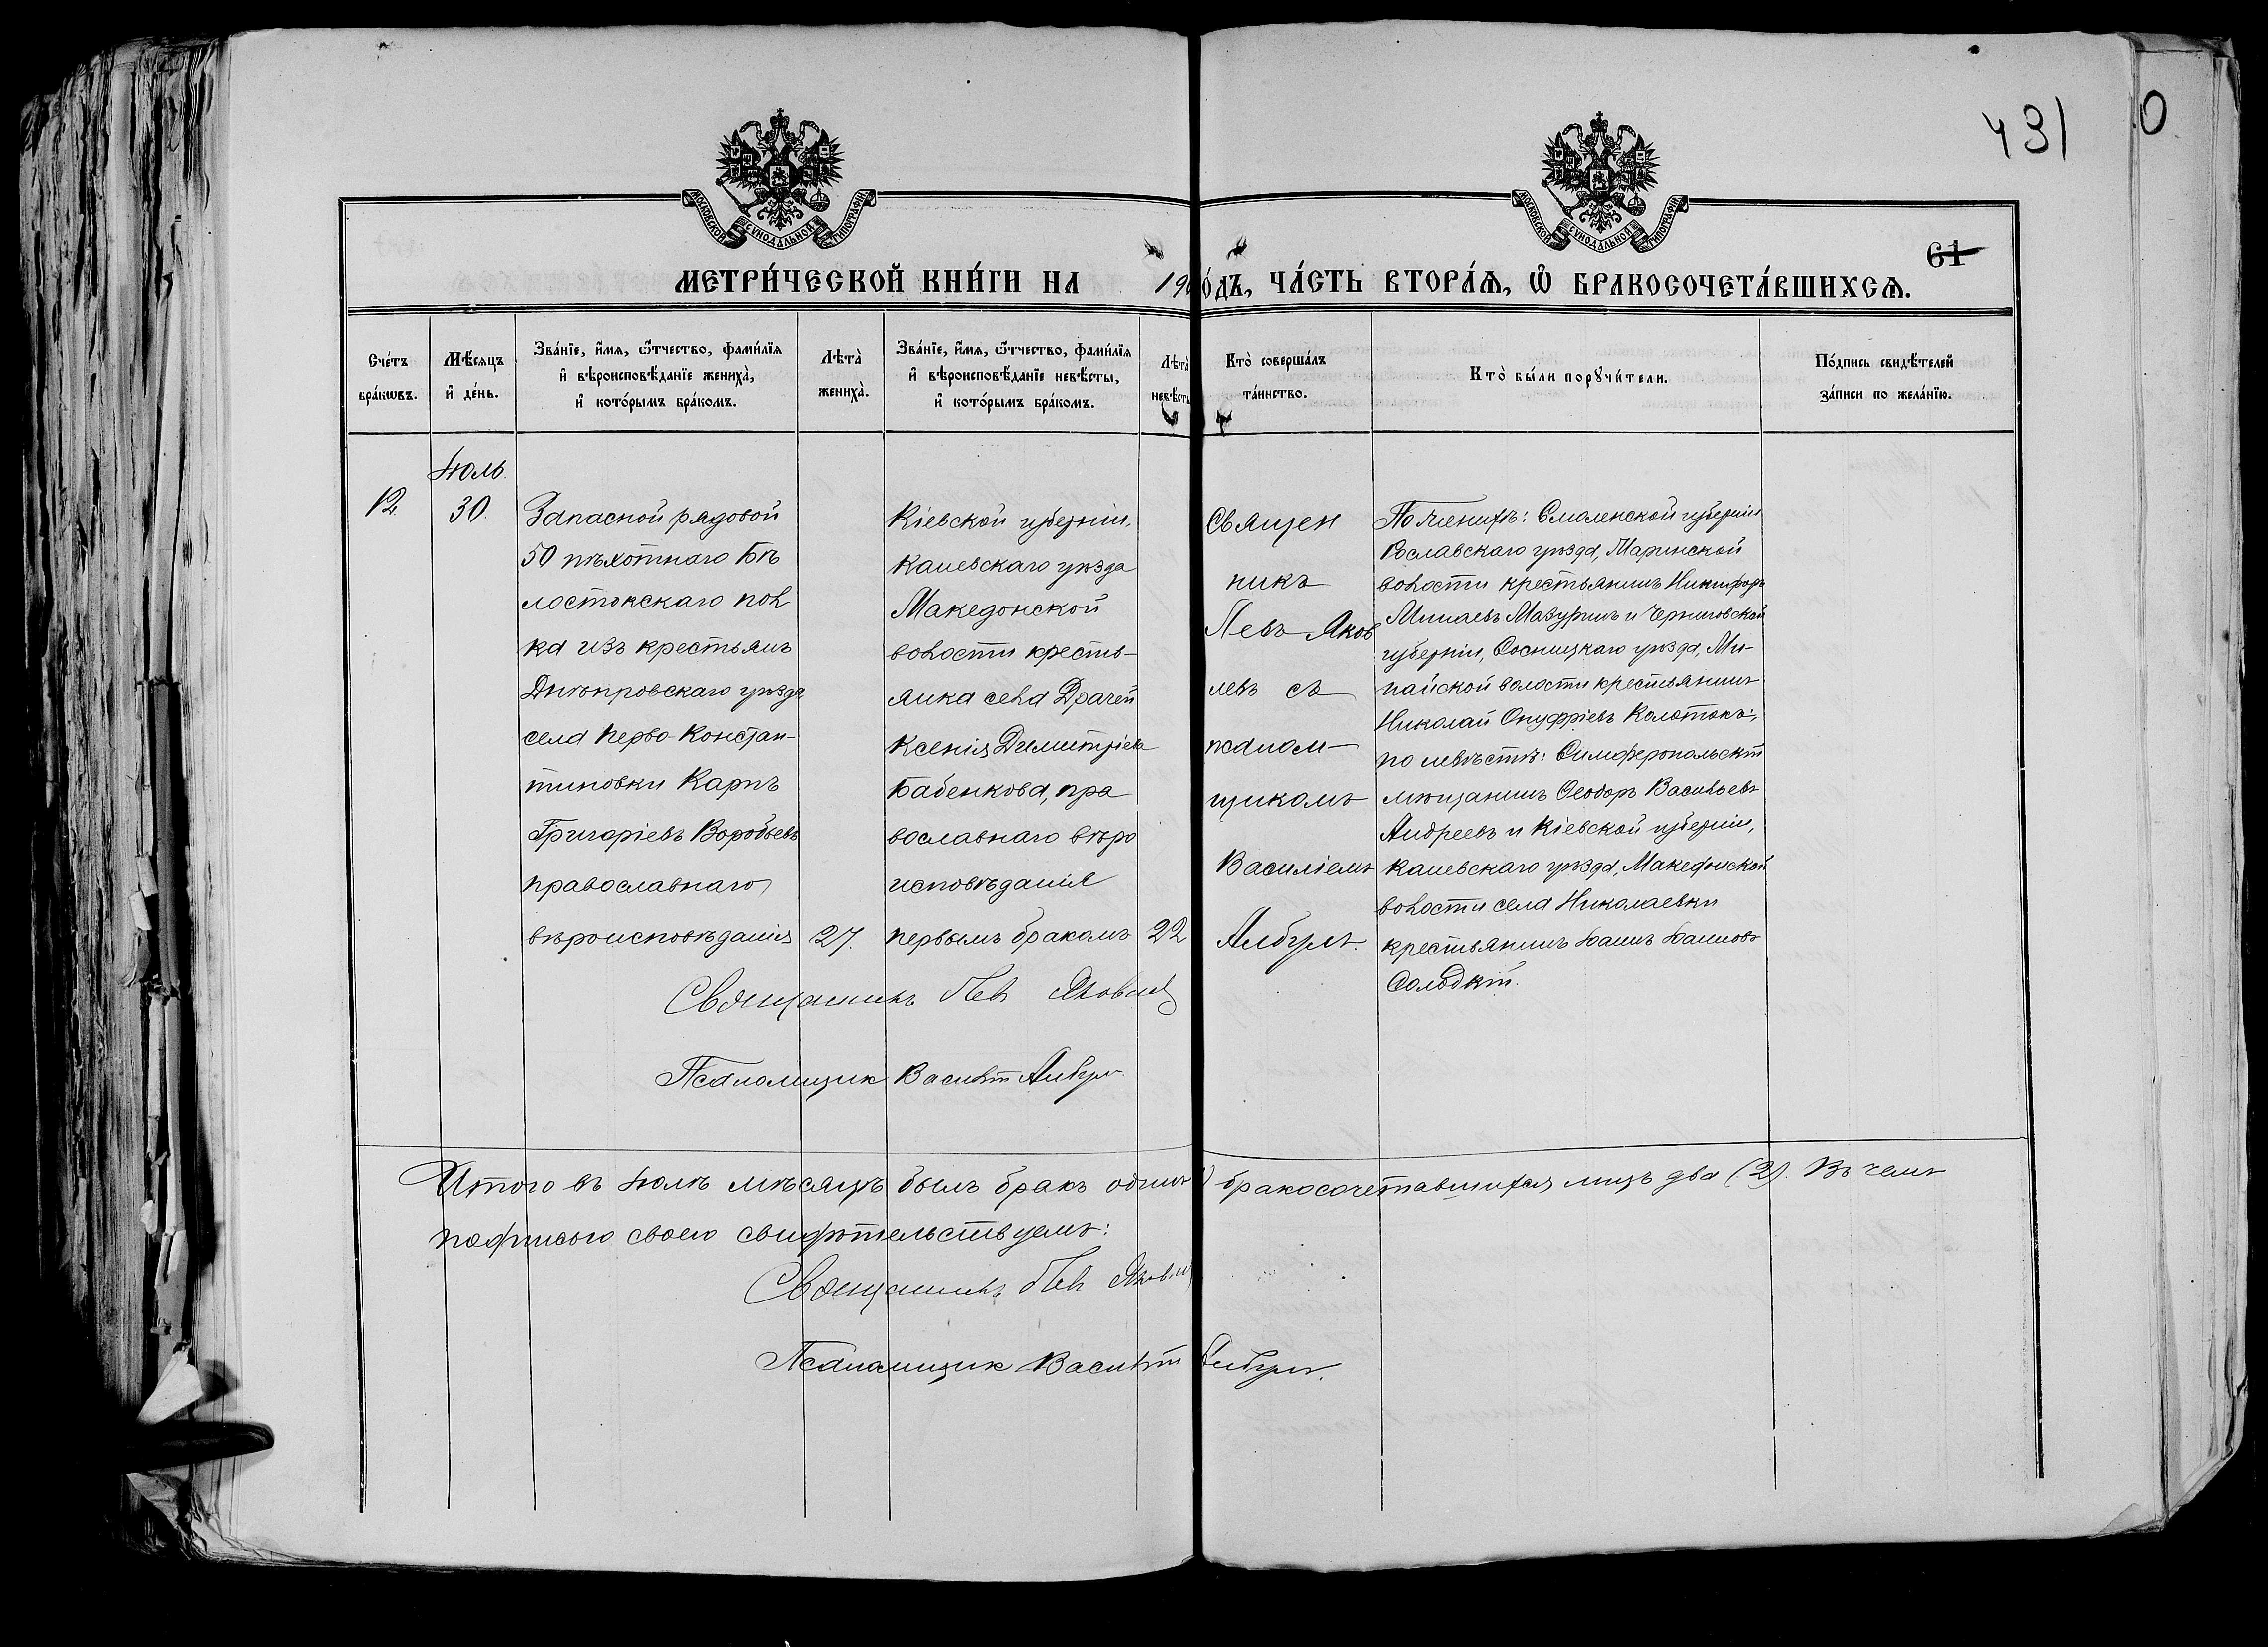 431
0
МОСКОВСКОЙ СУНОДАЛЬНОЙ ТИПОГРАФІИ
МОСКОВСКОЙ СУНОДАЛЬНОЙ ТИПОГРАФІИ
61
МЕТРИ́ЧЕСКОЙ КНИ́ГИ НА 19 О́ДЪ, ЧА́СТЬ ВТОРА́Ѧ, Ѽ БРАКОСОЧЕТА́ВШИХСѦ.
Сче́тъ
бра́кѡвъ.
Мѣ́сѧцъ
и҆ де́нь.
Зва́нїе, и҆́мѧ, ѻ҆́тчество, фами́лїѧ
и҆ вѣроисповѣ́данїе жениха̀,
и҆ кото́рымъ бра́комъ.
Лѣта̀
жениха̀.
Зва́нїе, и҆́мѧ, ѻ҆́тчество, фами́лїѧ
и҆ вѣроисповѣ́данїе невѣ́сты,
и҆ кото́рымъ бра́комъ.
Лѣта̀
невѣ́сты
Кто̀ соверша́лъ
та́инство.
Кто̀ бы́ли порꙋчи́тели.
По́дпись свидѣ́телей
за́писи по жела́нїю.
12.
Іюль.
30.
Запасной рядовой
50 пѣхотнаго Бѣ
лостокскаго пол
ка изъ крестьянъ
Днѣпровскаго уѣзда
села Перво-Констан-
тиновки Карпъ
Григоріевъ Воробьевъ
православнаго
вѣроисповѣданія
27.
Кіевской губерніи,
Каневскаго уѣзда
Македонской
волости кресть-
янка села Драчей
Ксенія Димитріева
Бабенкова, пра
вославнаго вѣро
исповѣданія
первымъ бракомъ
22
Священ
никъ
Левъ Яков
левъ съ
псалом-
щикомъ
Василіемъ
Албулъ.
По женихѣ: Смоленской губерніи
Рославскаго уѣзда, Маринской
волости крестьянинъ Никифоръ
Минаевъ Мазуринъ и Черниговской
губерніи, Сосницкаго уѣзда, Ми-
найской волости крестьянинъ
Николай Онуфріевъ Колотокъ;
по невѣстѣ: Симферопольскій
мѣщанинъ Ѳеодоръ Васильевъ
Андреевъ и Кіевской губерніи,
Каневскаго уѣзда, Македонской
волости села Николаевки
крестьянинъ Іоаннъ Іоанновъ
Солодкій.
Священникъ Левъ Яковлев
Псаломщик Василій Албулъ
Итого въ Іюлѣ мѣсяцѣ былъ бракъ одинъ ) бракосочетавшихся лицъ два (2). Въ чемъ
подписью своею свидѣтельствуемъ:
Священникъ Левъ Яковл
Псаломщик Василій Албулъ.